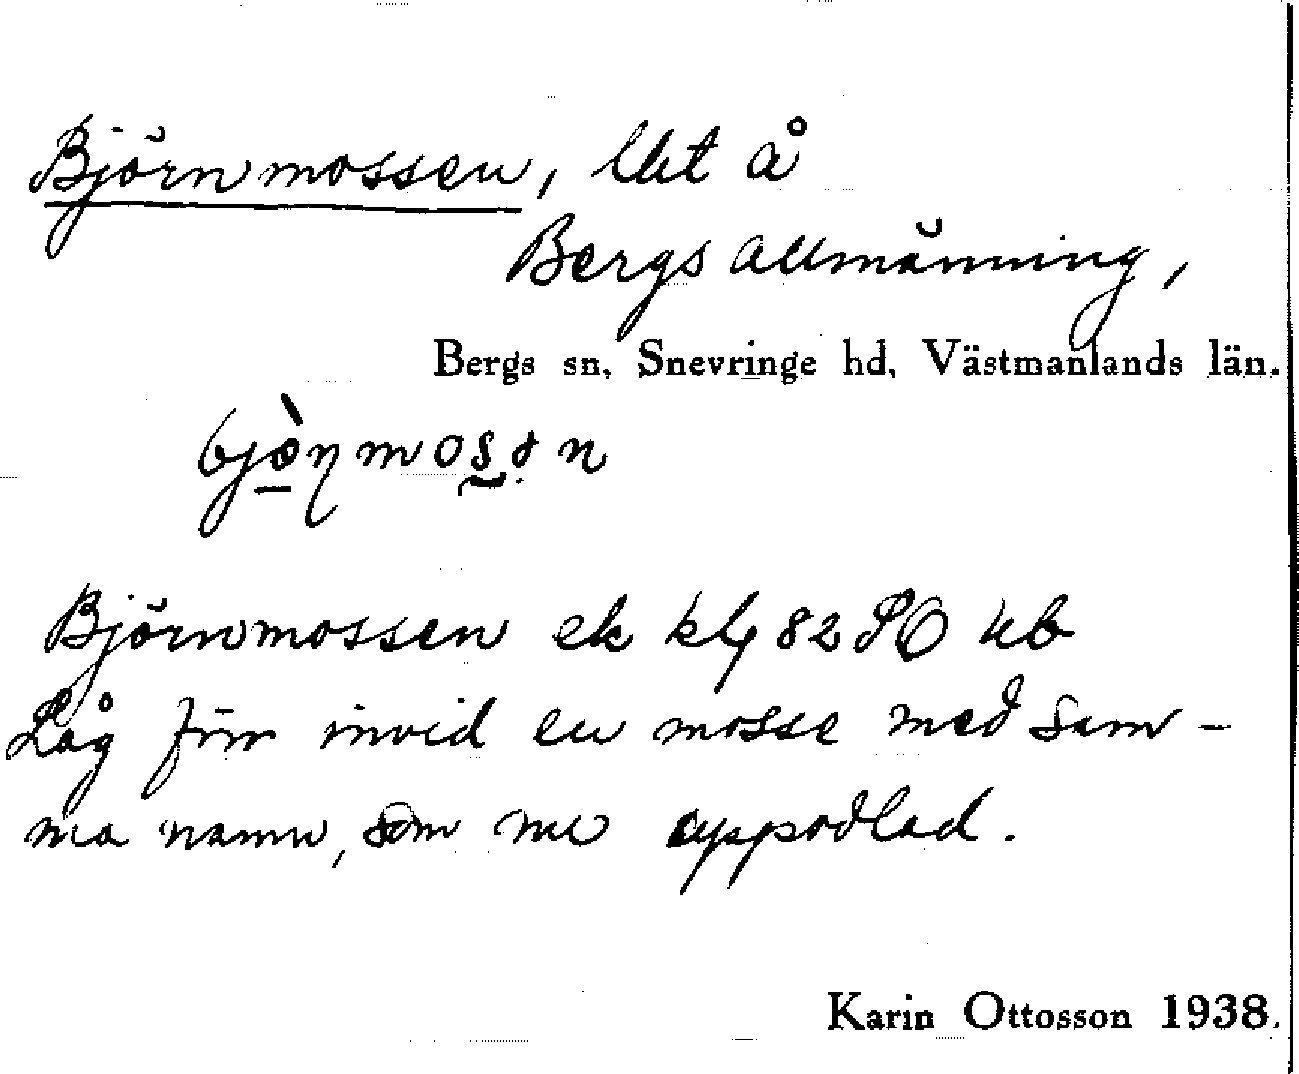 Björnmossen, lht å
Bergs allmänning,
Bergs sn, Snevringe hd, Västmanlands län.
bjö̀ŋmosən
Björnmossen ek kbl 82 SO ub
Låg förr invid en mosse med sam-
ma namn, som nu uppodlad.
Karin Ottosson 1938.